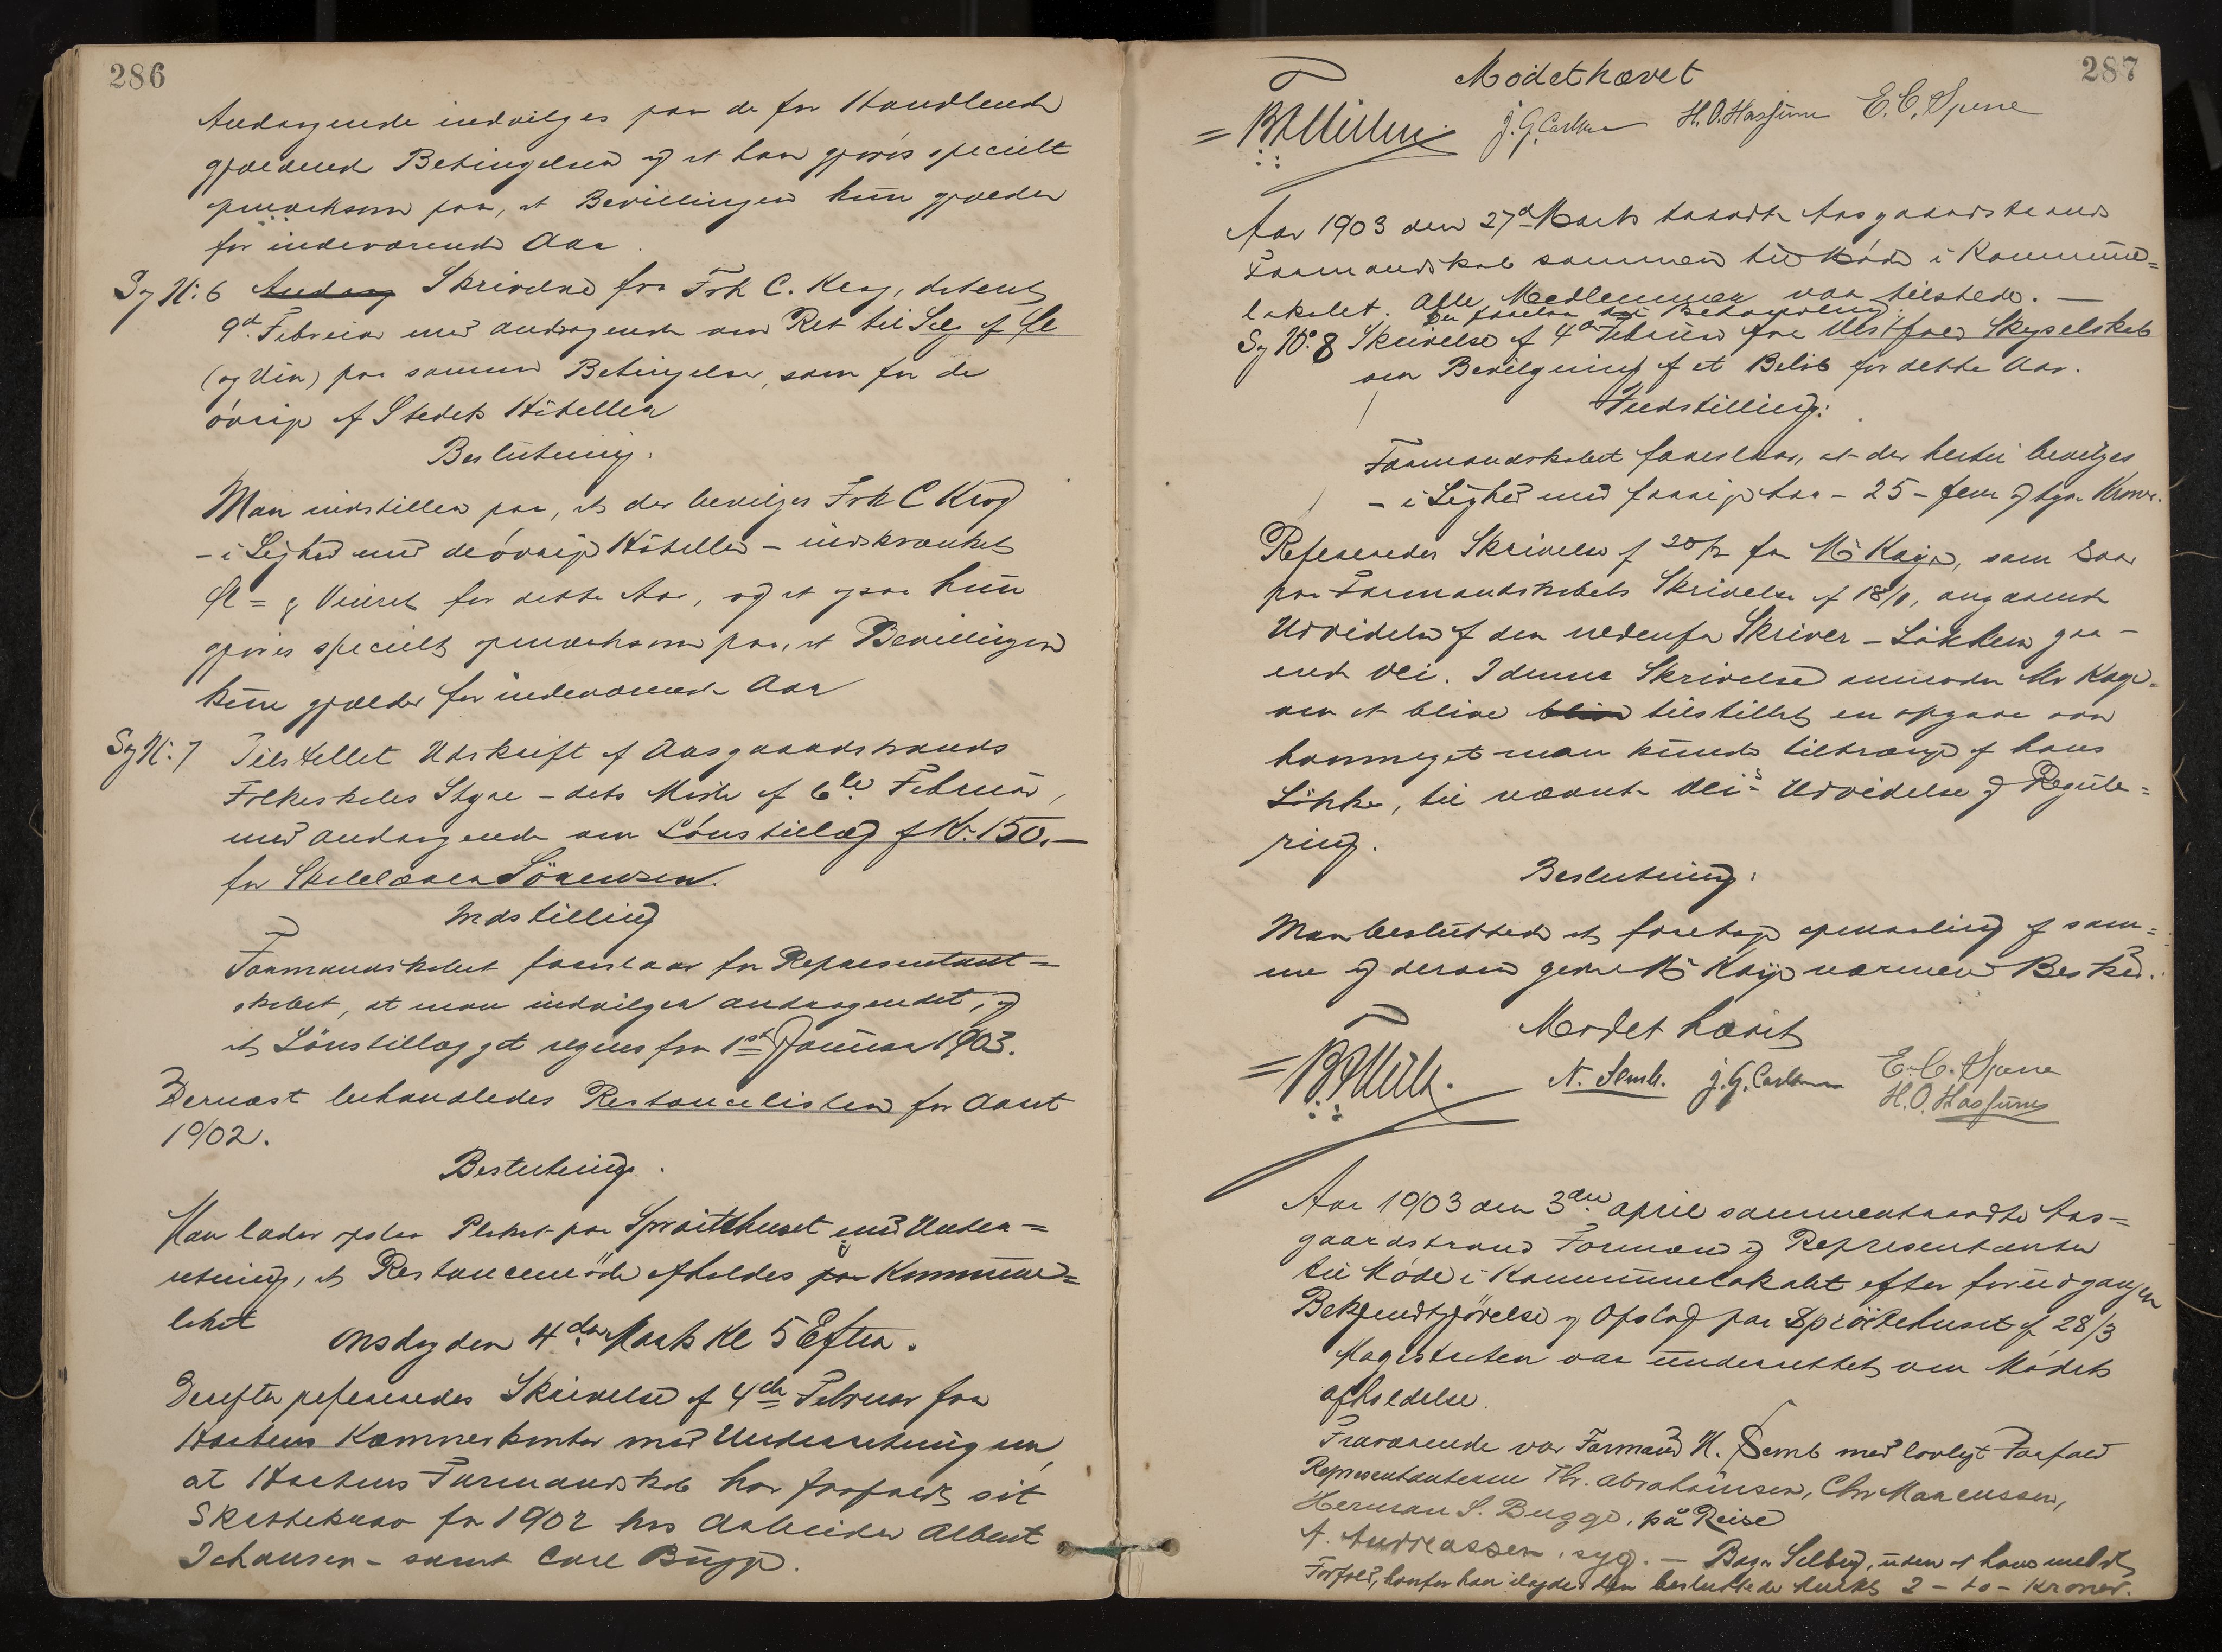 286
Andragende indvilges paa de for Handlende
gjældende Betingelser og at han gjøres specielt
opmærksom paa, at Bevillingen kun gjælder
for indeværende Aar.
Sg N: 6 Andrag Skrivelse fra Frk C. Krog, dateret
9d Februar med andragende om Ret til Salg af Øl
(og Vin) paa samme Betingelser, som for de
øvrige af Stedets Hôteller
Beslutning:
Man indstiller paa, at der bevilges Frk C Krog
- i Lighed med de øvrige Hôteller - indskrænket
Øl = & Vinret for dette Aar, og at ogsaa hun
gjøres specielt opmærksom paa, at Bevillingen
kun gjælder for indeværende Aar
Sg N: 7 Tilstillet Udskrift af Aasgaardstrands
Folkeskoles Styre - dets Møde af 6te Februar,
med andragende om Lønstillæg af Kr. 150.-
for Skolelærer Sörensen.
Indstilling
Formandskabet foreslaar for Repræsentant=
skabet, at man indvilger andragendet, og
at Lönstillægget regnes fra 1st Januar 1903.
Dernæst behandledes Restancelisten for Aaret
1902.
Beslutning.
Man lader opslaa Plakat paa Sprøitehuset med Under=
retning, at Restancemøde afholdes paa Kommune=
lokalet
Onsdag den 4de Marts Kl 5 Efterm.
Derefter refereredes Skrivelse af 4de Februar fra
Hortens Kæmnerkontor med Underretning om,
at Hortens Formandskab har frafaldt sit
Skattekrav for 1902 hos Arbeider Albert
Johansen - samt Carl Bugge.
287
Mødet hævet
J. G. Carlsen H. O. Hassum E. C. Spene
Aar 1903 den 27d Marts traadte Aasgaardstrands
Formandskab sammen til Møde i Kommune=
lokalet. Alle Medlemmer var tilstede. -
Der forelaa til Behandling:
Sg No. 8 Skrivelse af 4de Februar fra Vestfold Skyselskab
om Bevilgning af et Beløb for dette Aar.
Indstilling:
Formandskabet foreslaar, at der hertil bevilges
- i Lighed med forrige Aar - 25 - fem og tyve Kroner.
Refereredes Skrivelse af 20/2 fra Mr Kaye, som Svar
paa Formandskabets Skrivelse af 18/, angaaende
Udvidelse af den nedenfor Skriver-Løkken gaa-
ende Vei. I denne Skrivelse anmoder Mr Kaye
om at blive bliv tilstillet en opgave over
hvormeget man kunde tiltrænge af hans
Løkke, til nævnte Vei's Udvidelse og Regule=
ring.
Beslutning:
Man besluttede at foretage opmaaling af sam=
me og derom give Mr Kaye nærmere Besked.
Mødet hævet
N. Semb. J. G. Carlsen E. C. Spene
H. O. Hassum
Aar 1903 den 3die april sammentraadte Aas=
gaardstrands Formænd og Repræsentanter
til Møde i Kommunelokalet efter forudgangen
Bekjendtgjörelse og Opslag paa Spröitehuset af 28/3
Magistraten var underrettet om Mødets
afholdelse.
Fraværende var Formand N. Semb med lovligt Forfald
Repræsentanterne Thr. Abrahamsen, Chr Marcussen,
Herman S. Bugge, på Reise
A. Andreassen, syg. - Selberg, uden at have meldt
Forfald, hvorfor han ilagdes den besluttede Mulkt 2 - to - Kroner.